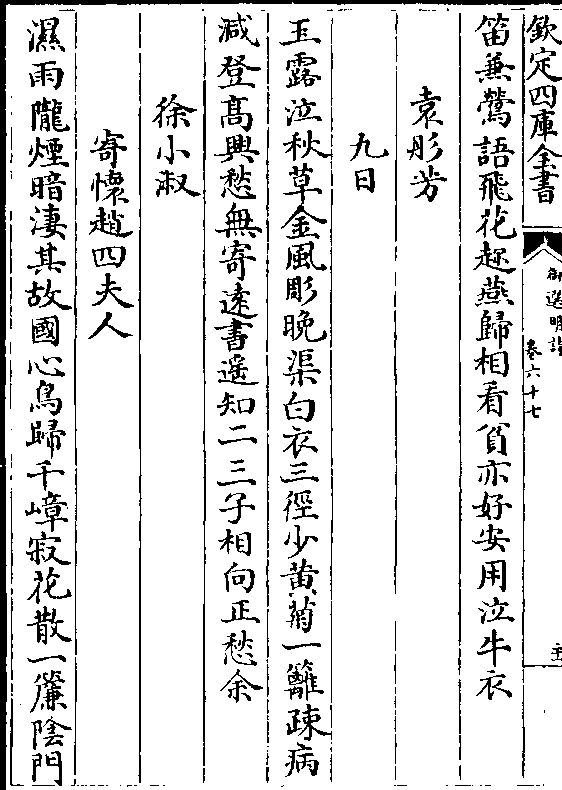 欽定四庫全書
御選明詩
卷六十七
笛兼鶯語飛花趂燕歸相看貧亦好安用泣牛衣
袁彤芳
九日
玉露泣秋草金風彫晚渠白衣三徑少黄菊一籬疎病
減登髙興愁無寄逺書遥知二三子相向正愁余
徐小淑
寄懷趙四夫人
濕雨隴煙暗淒其故國心鳥歸千嶂寂花散一簾陰門